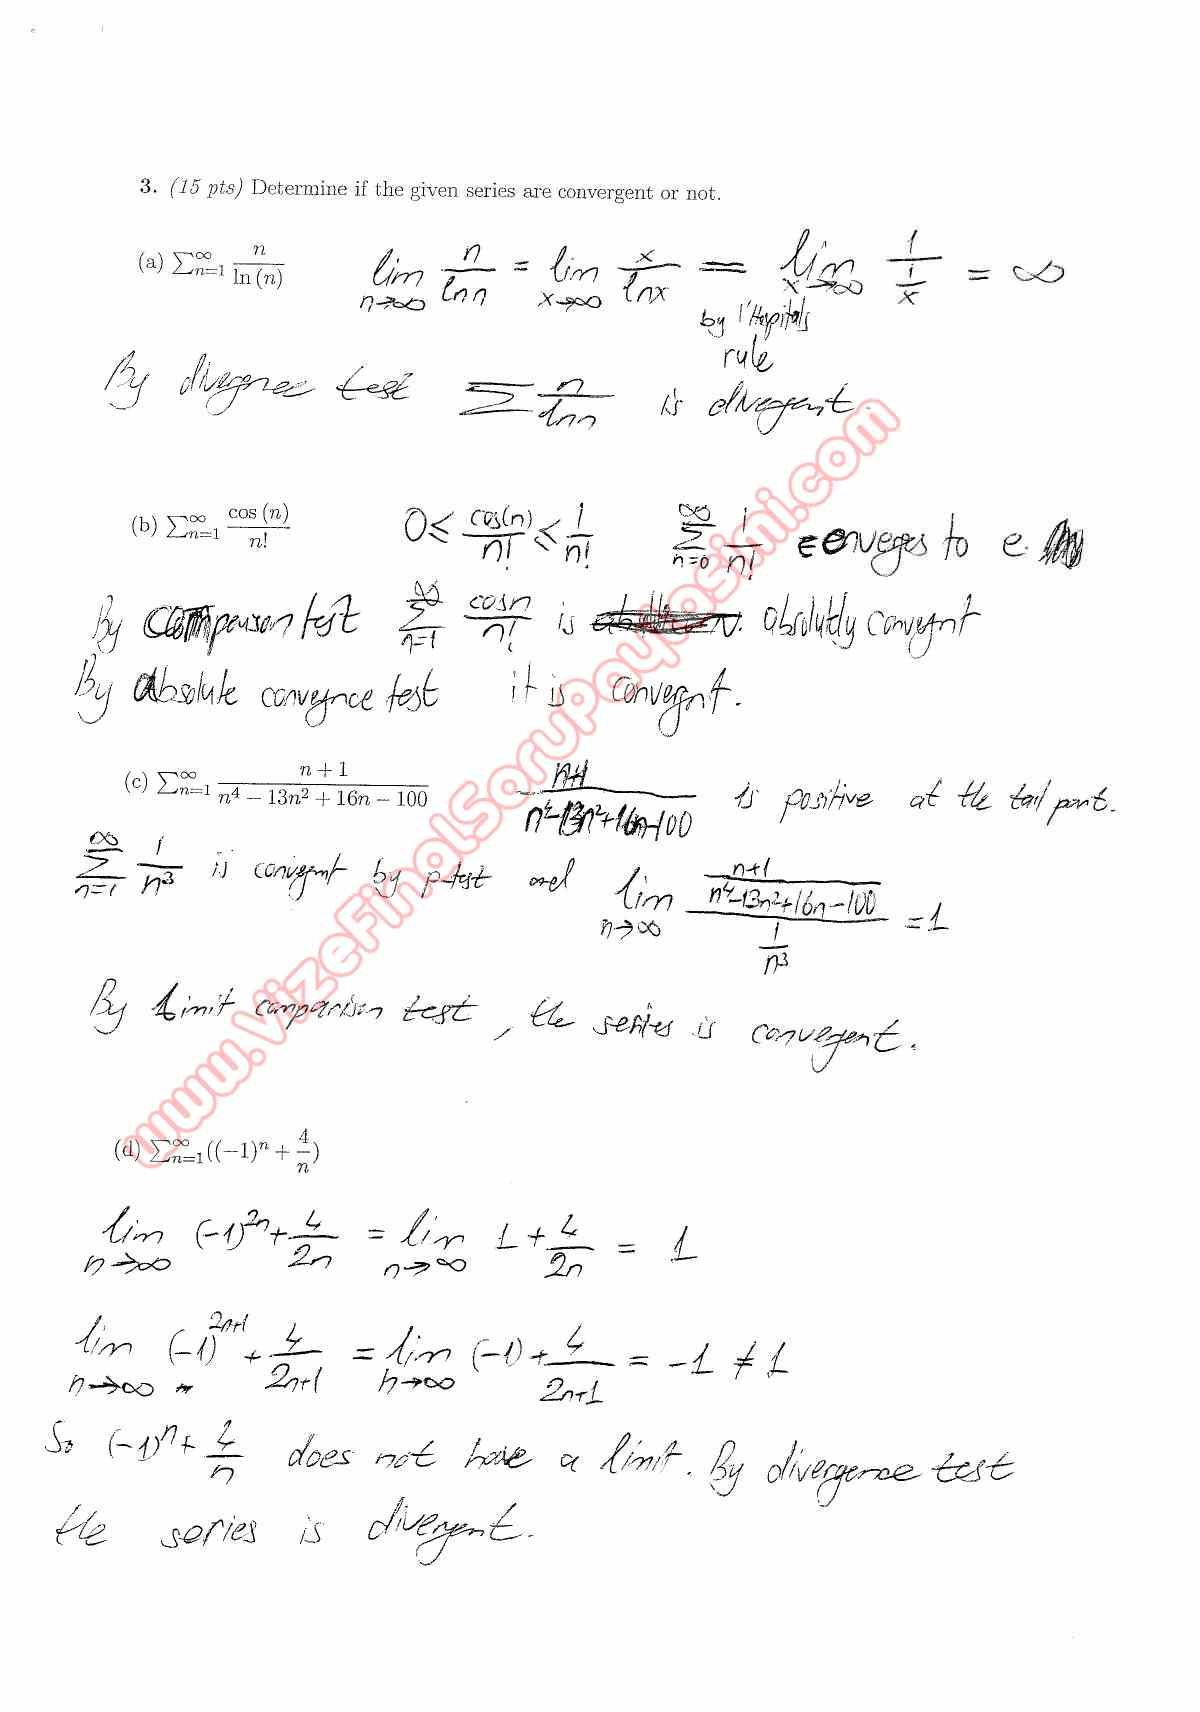 3. (15 pts) Determine if the given series are convergent or not.
(a) ∑_{n=1}^{∞} n/ln(n)   lim_{n→∞} n/ln n = lim_{x→∞} x/ln x = lim_{x→∞} 1/(1/x) = ∞
by l'Hospitals
rule
By divergence test ∑ n/ln n is divergent.
(b) ∑_{n=1}^{∞} cos(n)/n!   0 ≤ cos(n)/n! ≤ 1/n!   ∑_{n=0}^{∞} 1/n! converges to e.
By comparison test ∑_{n=1}^{∞} cos n/n! is absolutly convergnt
By Absolute convergnce test it is convergnt.
(c) ∑_{n=1}^{∞} (n+1)/(n⁴ − 13n² + 16n − 100)   (n+1)/(n⁴−13n²+16n−100) is positive at the tail part.
∑_{n=1}^{∞} 1/n³ is convergent by p-test and lim_{n→∞} ((n+1)/(n⁴−13n²+16n−100))/(1/n³) = 1
By Limit comparison test, the series is convergent.
(d) ∑_{n=1}^{∞} ((−1)ⁿ + 4/n)
lim_{n→∞} (−1)^{2n} + 4/2n = lim_{n→∞} 1 + 4/2n = 1
lim_{n→∞} (−1)^{2n+1} + 4/(2n+1) = lim_{n→∞} (−1) + 4/(2n+1) = −1 ≠ 1
So (−1)ⁿ + 4/n does not have a limit. By divergence test
the series is divergent.
www.VizeFinalSoruPaylasimi.com